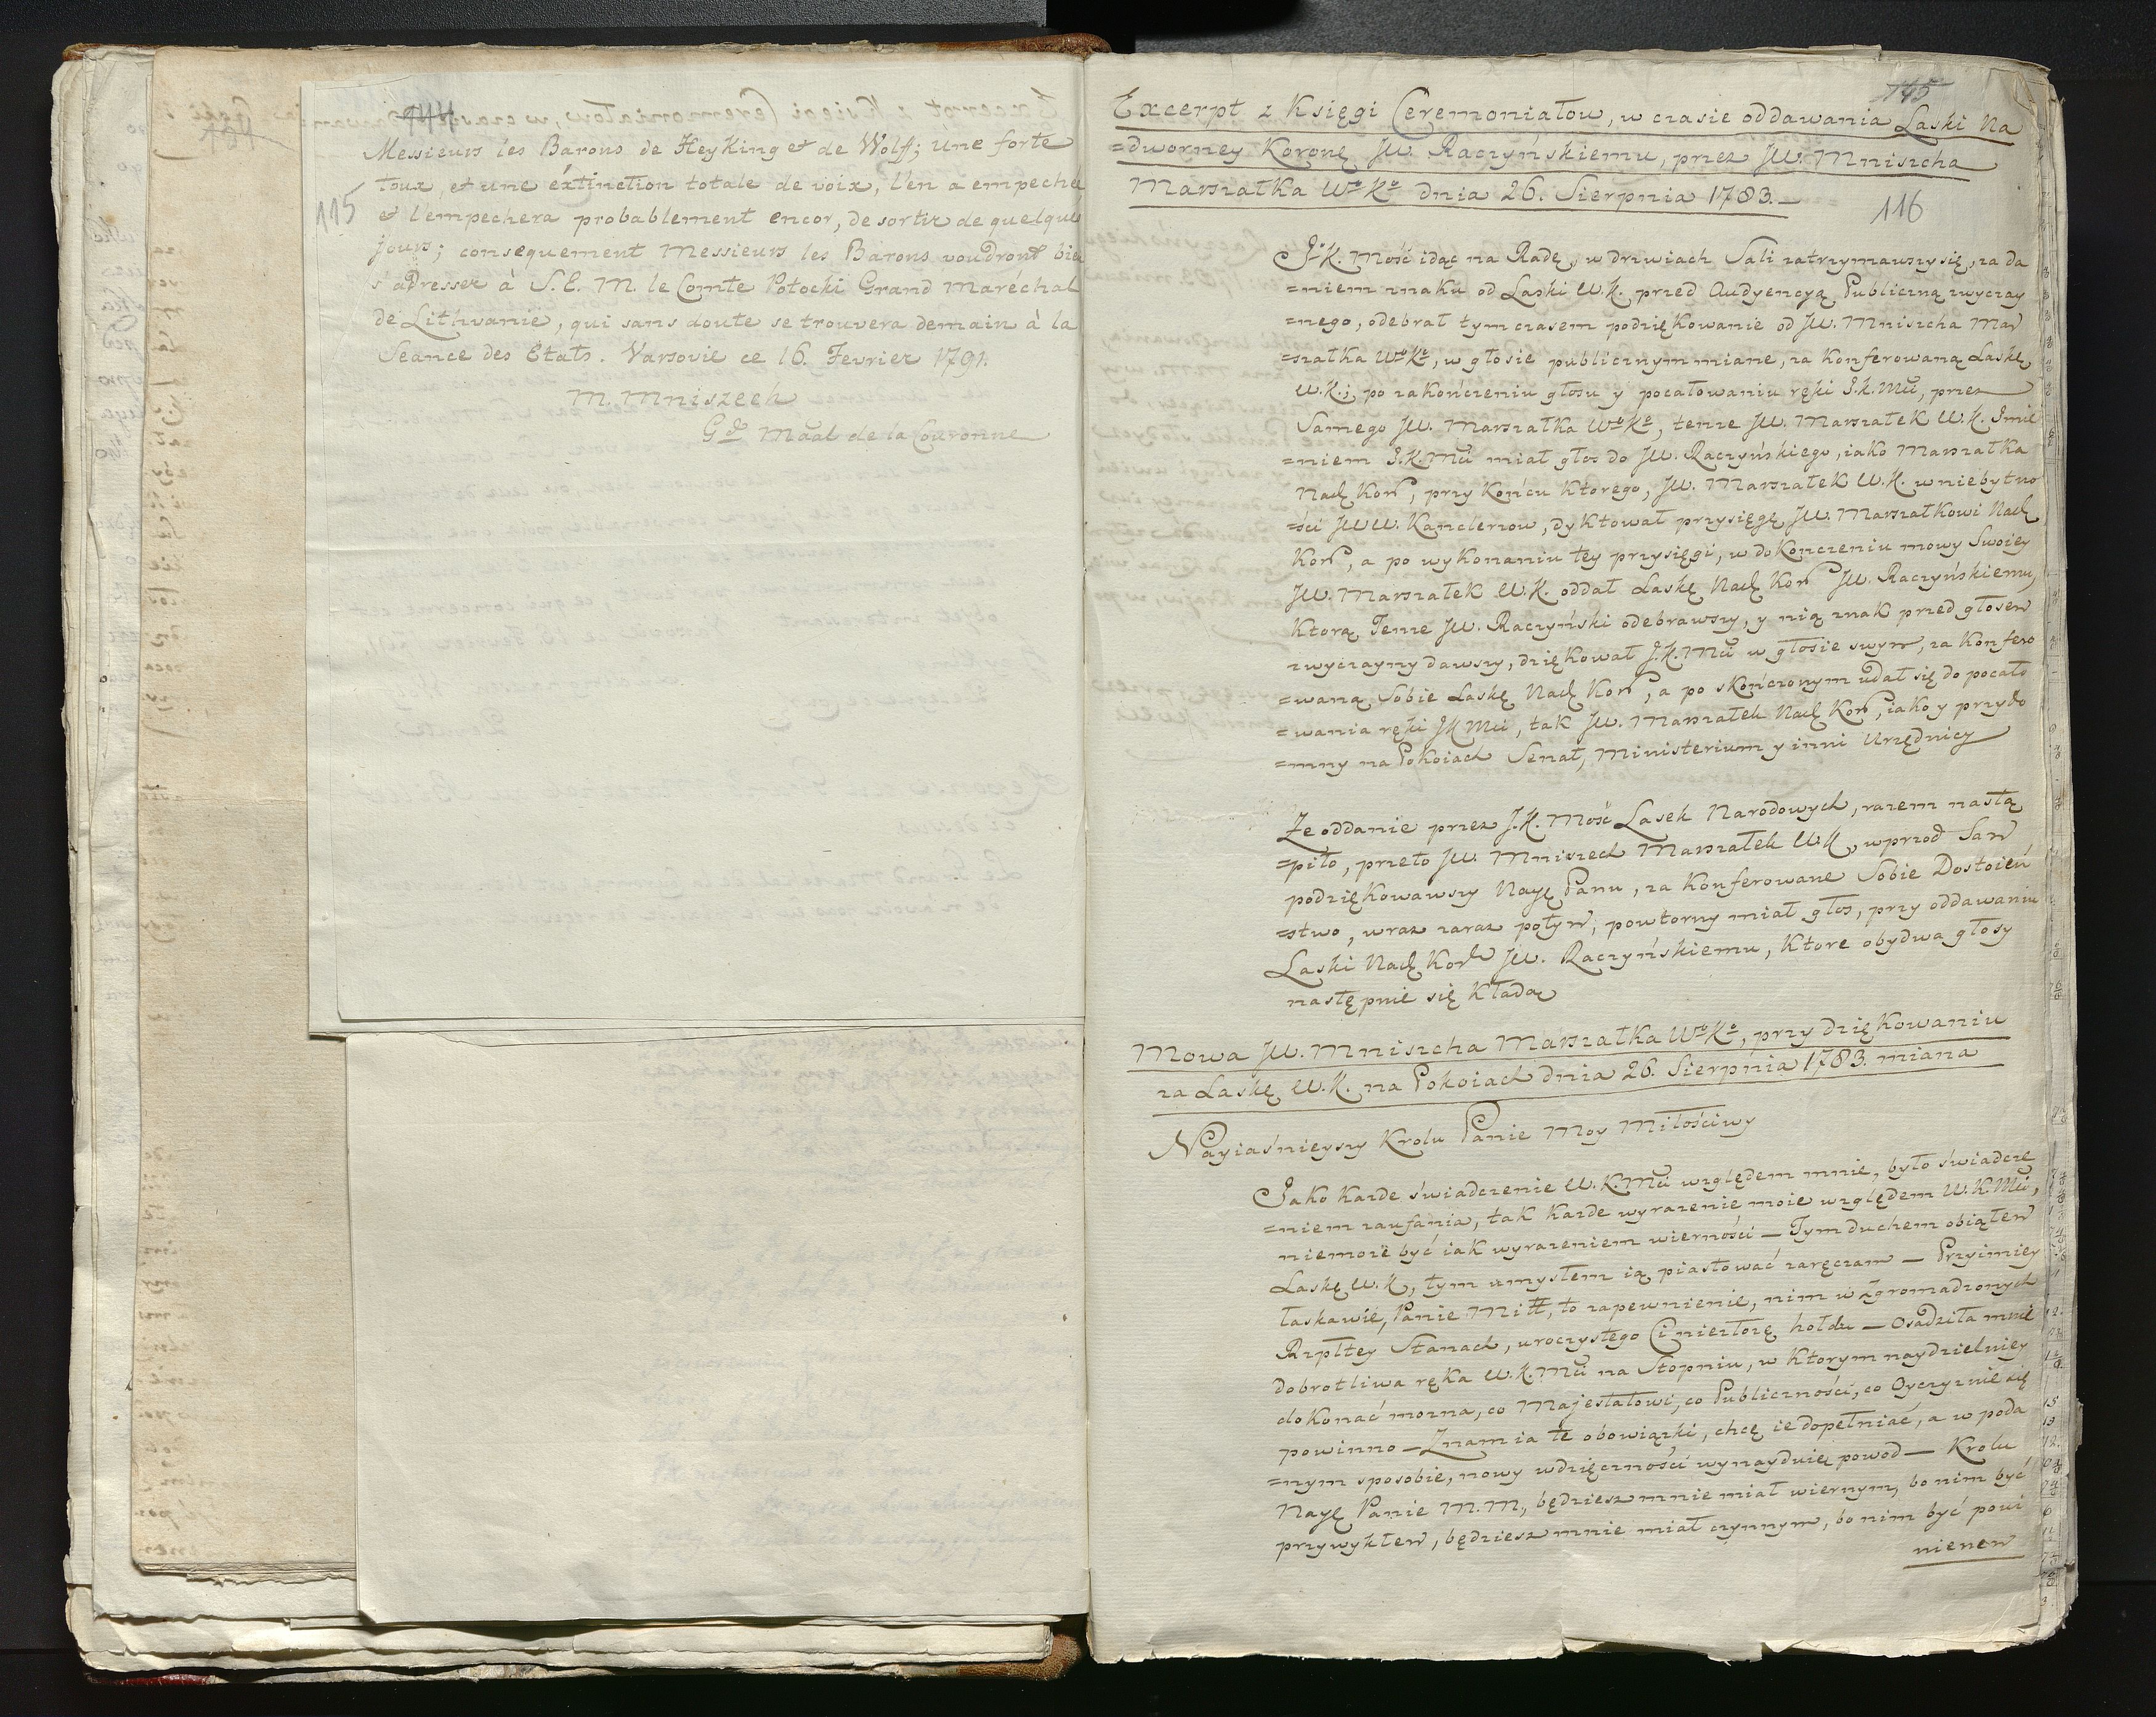 144
Messieurs les Barons de HeyKing et de Wolff; une forte
toux, et une éxtinction totale de voix, l'en a empeché
115
et l'empechera probablement encor, de sortir de quelque
jours; consequement Messieurs les Barons voudront bie
s'adresser à S. E. M. le Comte Potocki Grand Maréchal
de Lithvanie, qui sans doute se trouvera demain à la
Seance des Etats. Varsovie ce 16. Fevrier 1791.
M. Mniszech
Gd Maal de la Couronne
145
Excerpt z Księgi Ceremoniałow, w czasie oddawania Laski Na
=dworney Koronę JW. Raczyńskiemu, przez JW. Mniszcha
Marszałka Wo Ko dnia 26. Sierpnia 1783.
116
J. K. Mość idąc na Radę, w drzwiach Sali zatrzymawszy się, za da
=niem znaku od Laski W. K. przed Audyencyą Publiczną zwyczay
=nego, odebrał tym czasem podziękowanie od JW. Mniszcha Mar
=szałka Wo Ko, w głosie publicznym miane, za Konferowaną Laskę
W. K.; po zakończeniu głosu y pocałowaniu ręki J. K. Mci, przez
Samego JW. Marszałka Wo Ko, tenze JW. Marszałek W. K. Imie
=niem J. K. Mci miał głos do JW. Raczyńskiego, iako Marszałka
Nadę Kor, przy Końcu Ktorego, JW. Marszałek W. K. w niebytno
=ści JWW. Kanclerzow, dyktował przysięgę JW. Marszałkowi Nadę
Kor, a po wykonaniu tey przysięgi, w dokonczeniu mowy Swoiey
JW. Marszałek W. K. oddał Laskę Nadę Kor JW. Raczyńskiemu,
Ktorą Tenze JW. Raczyński odebrawszy, y nią znak przed głosem
zwyczayny dawszy, dziękował J. K. Mci w głosie swym, za Konfero
=waną Sobie Laskę Nadę Kor, a po skończonym udał się do pocało
=wania ręki JK Mci, tak JW. Marszałek Nadę Kor, iako y przyto
=mny na Pokoiach Senat, Ministerium y inni Urzędnicy
Ze oddanie przez J. K. Mość Lasek Narodowych, razem nastą
=piło, przeto JW. Mniszech Marszałek W. K, wprzod Sam
podziękowawszy Nayę Panu, za Konferowane Sobie Dostoień
=stwo, wraz zaraz potym, powtorny miał głos, przy oddawaniu
Laski Nadę Kor JW. Raczyńskiemu, Ktore obydwa głosy
następnie się Kładą
Mowa JW. Mniszcha Marszałka Wo Ko, przy dziękowaniu
za Laskę W. K. na Pokoiach dnia 26. Sierpnia 1783. miana
Nayiaśnieyszy Krolu Panie Moy Miłościwy
Jako Kazde świadczenie W. K. Mci względem mnie, było świadcze
=niem zaufania, tak Kazde wyrazenie moie względem W. K. Mci,
niemoze być iak wyrazeniem wierności — Tym duchem obiąłem
Laskę W. K, tym umysłem ią piastować zaręczam — Przyimiey
łaskawie, Panie Miłł, to zapewnienie, nim w zgromadzonych
Rzpltey Stanach, uroczystego Ci niezłozę hołdu — Osadziła mnie
dobrotliwa ręka W. K. Mci na Stopniu, w Ktorym naydzielniey
dokonać mozna, co Majestatowi, co Publiczności, co Oyczyznie się
powinno — Znam ia te obowiązki, chcę ie dopełniać, a w poda
=nym sposobie, nowy wdzięczności wynayduię powod — Krolu
Nayę Panie M. M., będziesz mnie miał wiernym, bo nim być
przywykłem, będziesz mnie miał czynnym, bo nim być powi
nienem